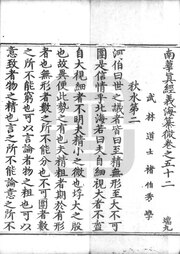 南華真經義海纂微卷之五十二 端九
武林道士褚伯秀學
秋水第二
河伯曰世之議者皆曰至精無形至大不可
圍是信情乎北海若曰夫自細視大者不盡
自大視細者不明夫精小之微也垺大之殷
也故異便此勢之有也夫精粗者期於有形
者也無形者數之所不能分也不可圍者數
之所不能窮也可以言論者物之粗也可以
意致者物之精也言之所不能論意之所不